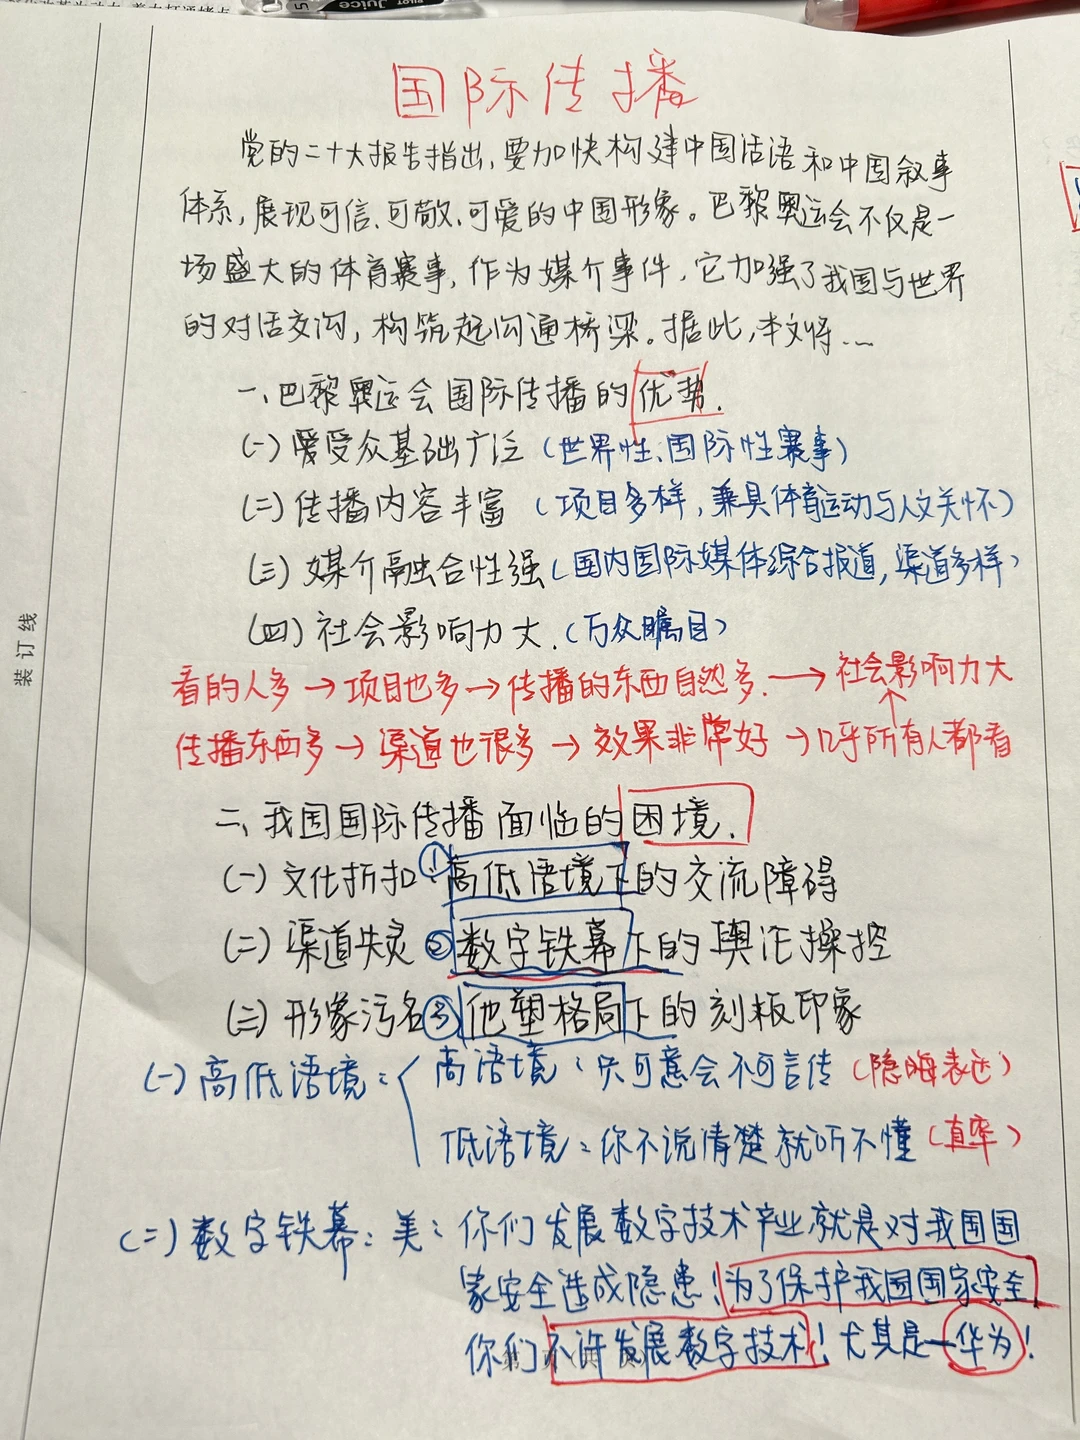 PILOT Juice 5
国际传播
党的二十大报告指出，要加快构建中国话语和中国叙事
体系，展现可信、可敬、可爱的中国形象。巴黎奥运会不仅是一
场盛大的体育赛事，作为媒介事件，它加强了我国与世界
的对话交沟，构筑起沟通桥梁。据此，本文将...
一、巴黎奥运会国际传播的优势.
(一) 受众基础广泛（世界性、国际性赛事）
(二) 传播内容丰富（项目多样，兼具体育运动与人文关怀）
(三) 媒介融合性强（国内国际媒体综合报道，渠道多样）
(四) 社会影响力大.（万众瞩目）
看的人多→项目也多→传播的东西自然多.→社会影响力大
传播东西多→渠道也很多→效果非常好→几乎所有人都看
二、我国国际传播面临的困境.
(一) 文化折扣：①高低语境下的交流障碍
(二) 渠道失灵②数字铁幕下的舆论操控
(三) 形象污名③他塑格局下的刻板印象
(一) 高低语境：高语境：只可意会不可言传（隐晦表达）
低语境：你不说清楚就听不懂（直率）
(二) 数字铁幕：美：你们发展数字技术产业就是对我国国
家安全造成隐患！为了保护我国国家安全
你们不许发展数字技术！尤其是—华为！
装订线